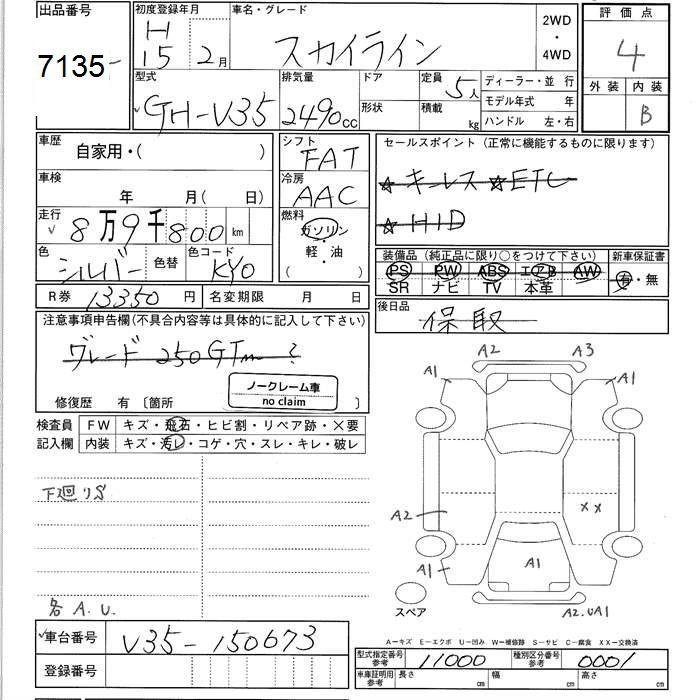 出品番号 初度登録年月 車名・グレード 評価点
H
7135 15 2月 スカイライン 2WD・4WD 4
外装 内装
B
型式 排気量 ドア 定員 5人 ディーラー・並行
GH-V35 2490cc 形状 積載 kg モデル年式 年
ハンドル 左・右
車歴 シフト セールスポイント (正常に機能するものに限ります)
自家用・( ) FAT
車検 冷房 ☆キーレス ☆ETC
年 月( 日) AAC ☆HID
走行 燃料
8万9千800km ガソリン
軽・油
( )
色 色替 色コード 装備品 (純正品に限り○をつけて下さい) 新車保証書
シルバー KY0 PS PW ABS エアB AW 有・無
SR ナビ TV 本革
R券 13350円 名変期限 月 日 後日品
保 取
注意事項申告欄(不具合内容等は具体的に記入して下さい)
グレード 250GTm ?
ノークレーム車
no claim
修復歴 有 〔箇所 〕
検査員 FW キズ・飛石・ヒビ割・リペア跡・×要
記入欄 内装 キズ・汚レ・コゲ・穴・スレ・キレ・破レ
A2 A3
A1 A1
下廻りS
A2 XX
A1 A1
スペア A2.UA1
各A.U.
A=キズ E=エクボ U=凹み W=補修跡 S=サビ C=腐食 XX=交換済
車台番号 V35-150673
型式指定番号 参考 11000 種別区分番号 参考 0001
登録番号
車庫証明用 参考 長さ cm 幅 cm 高さ cm